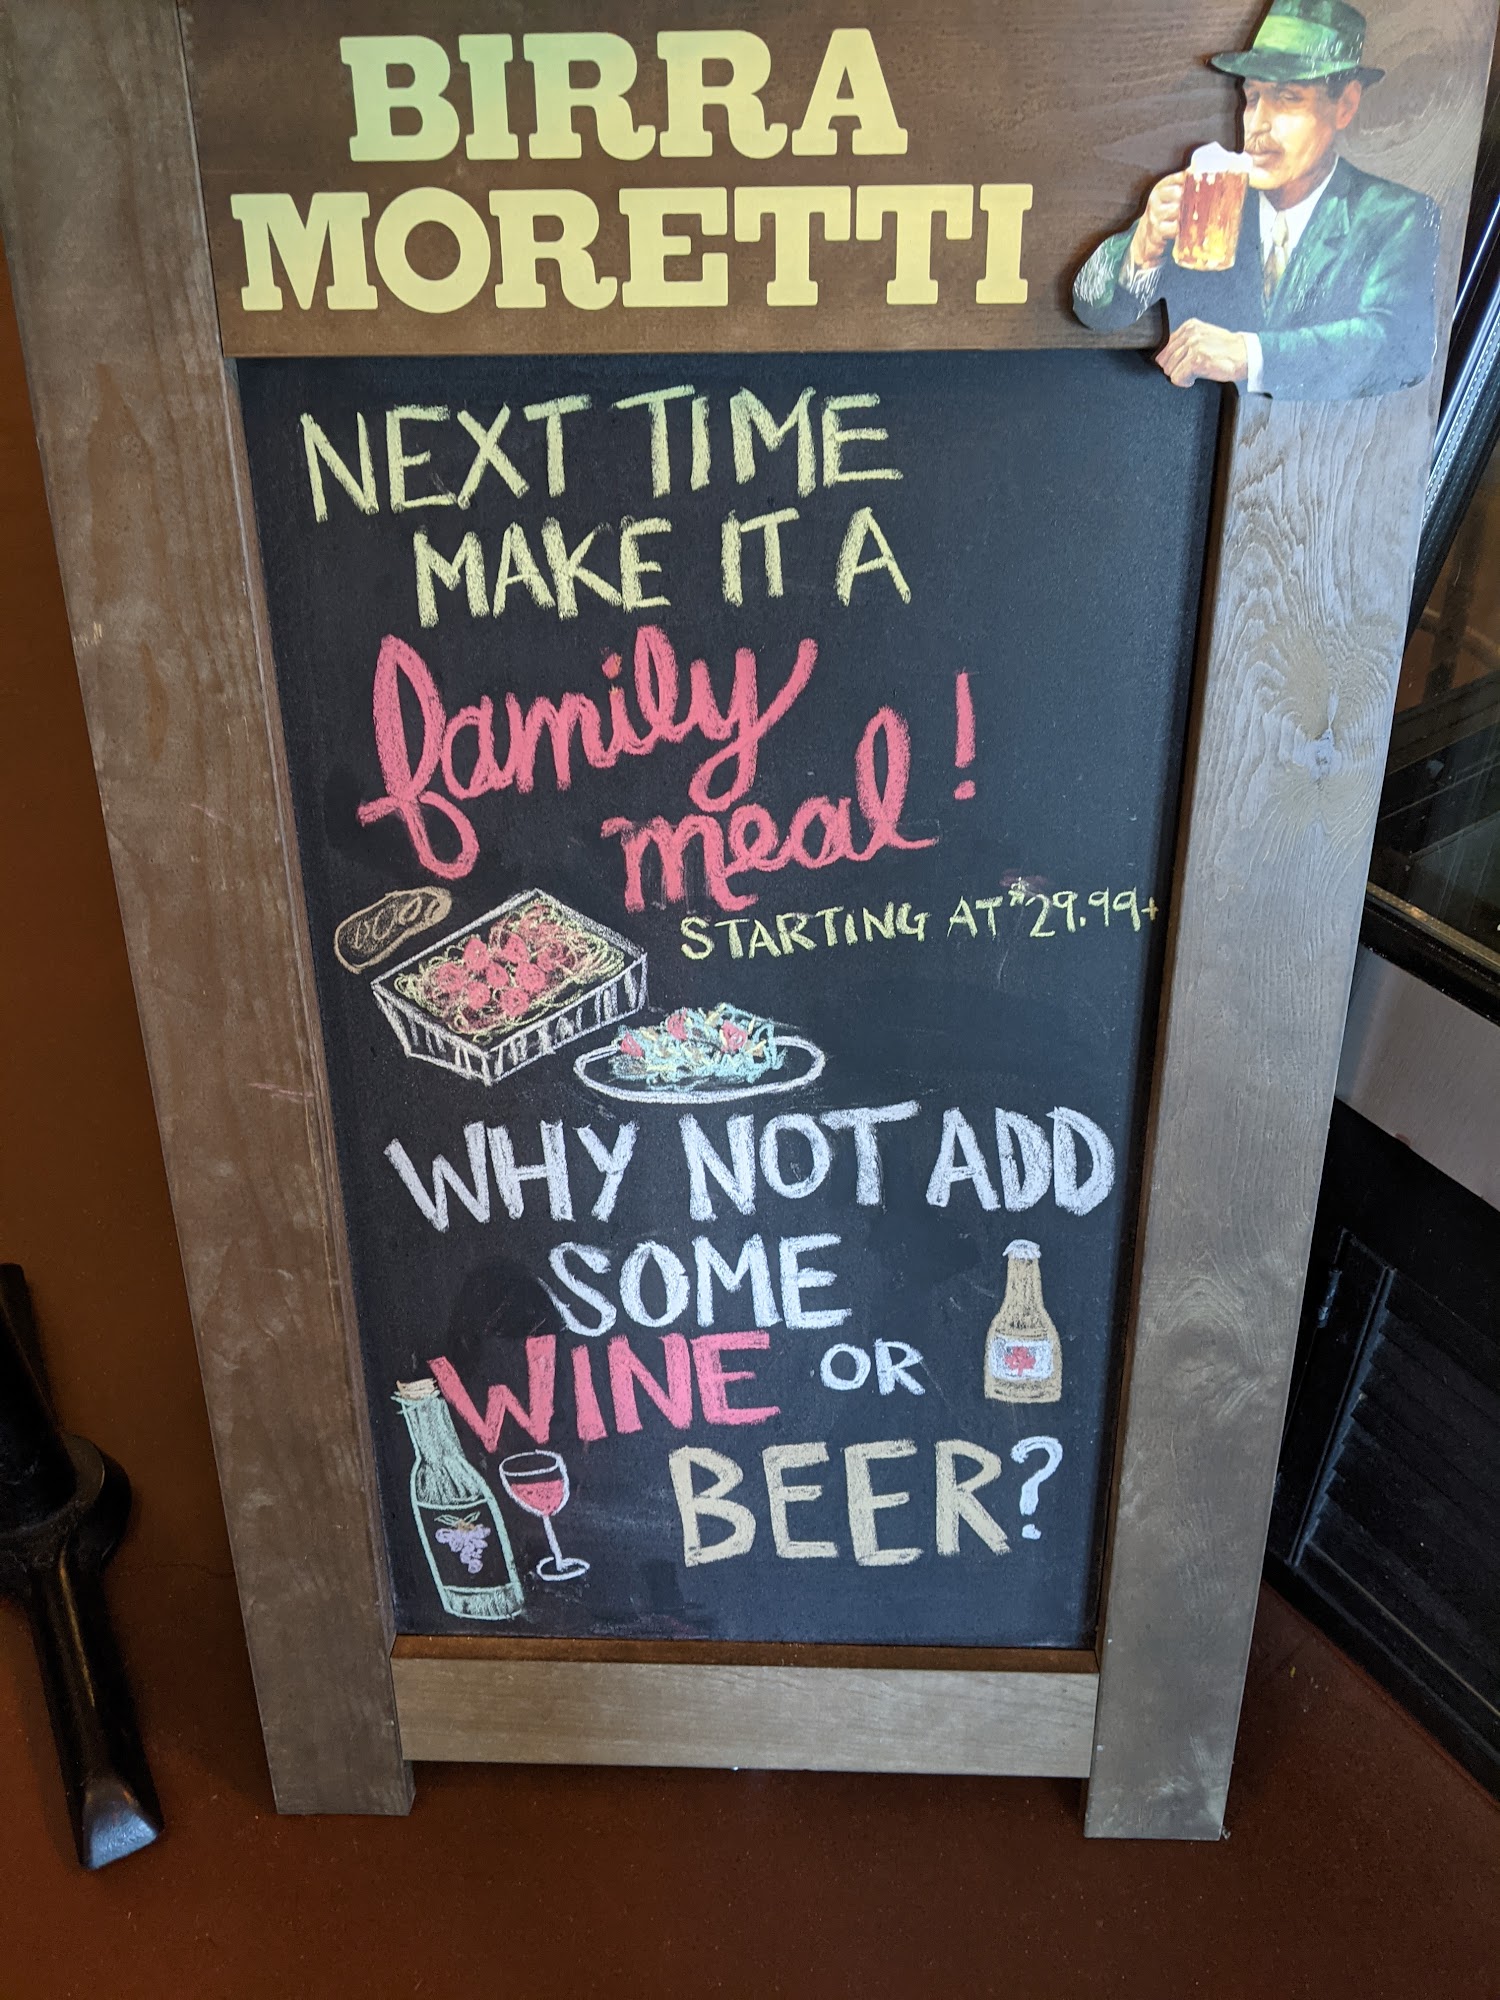 BIRRA
MORETTI
NEXT TIME
MAKE IT A
family
meal!
STARTING AT $29.99+
WHY NOT ADD
SOME
WINE OR
BEER?